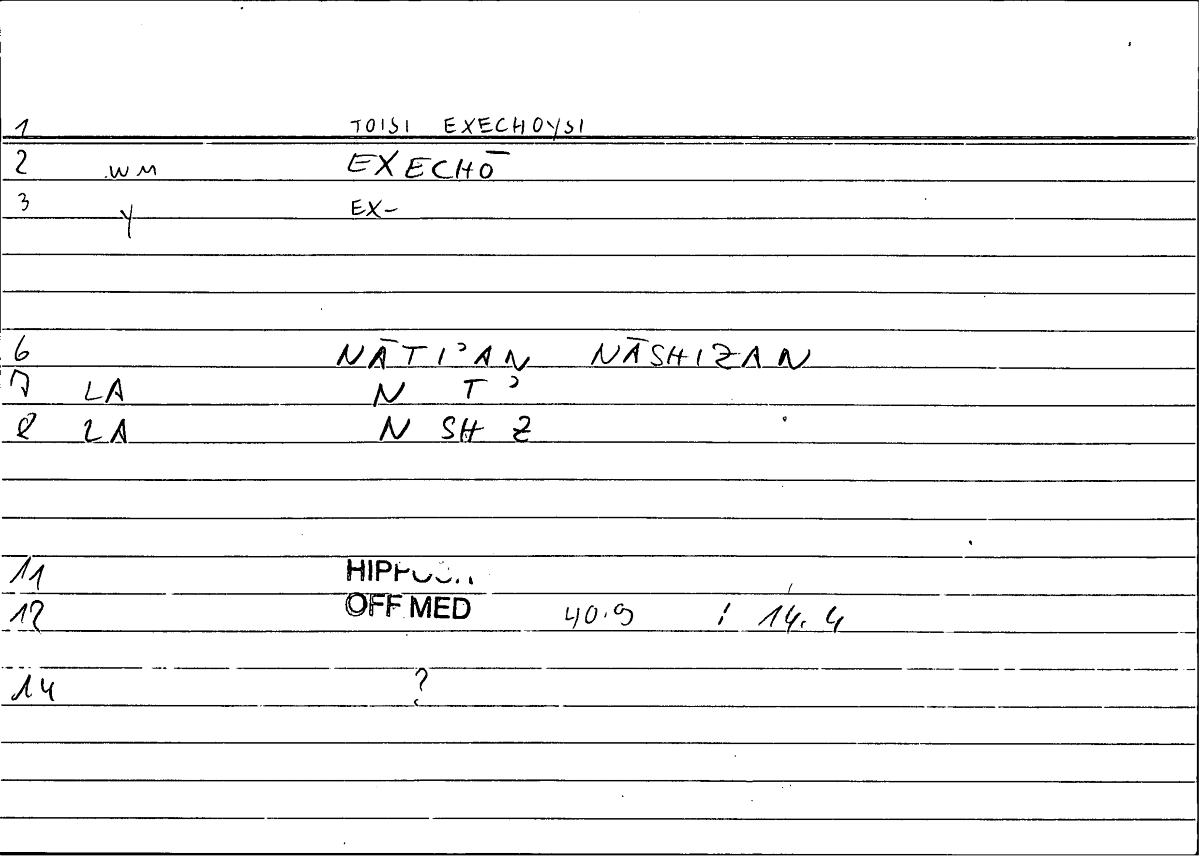 1 TOISI EXECHOYSI
2 WM EXECHŌ
3 Y EX-
6 NĀTI'AN NĀSHIZAN
7 LA N T '
8 LA N SH Z
11
12 OFF MED 40.9 : 14.4
14 ?